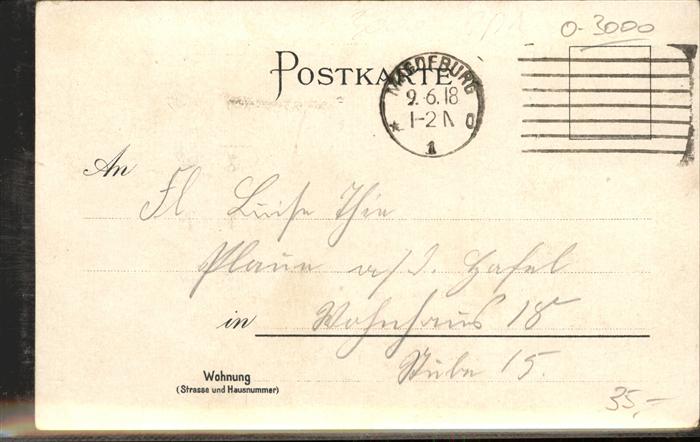 O-3000
POSTKARTE
MAGDEBURG
9.-6.18
1-2 N
* 1 o
An
Fl Luise Thie
Plaue a/d. Hafel
in Wohnhaus 18
Stube 15.
Wohnung
(Strasse und Hausnummer)
35,-